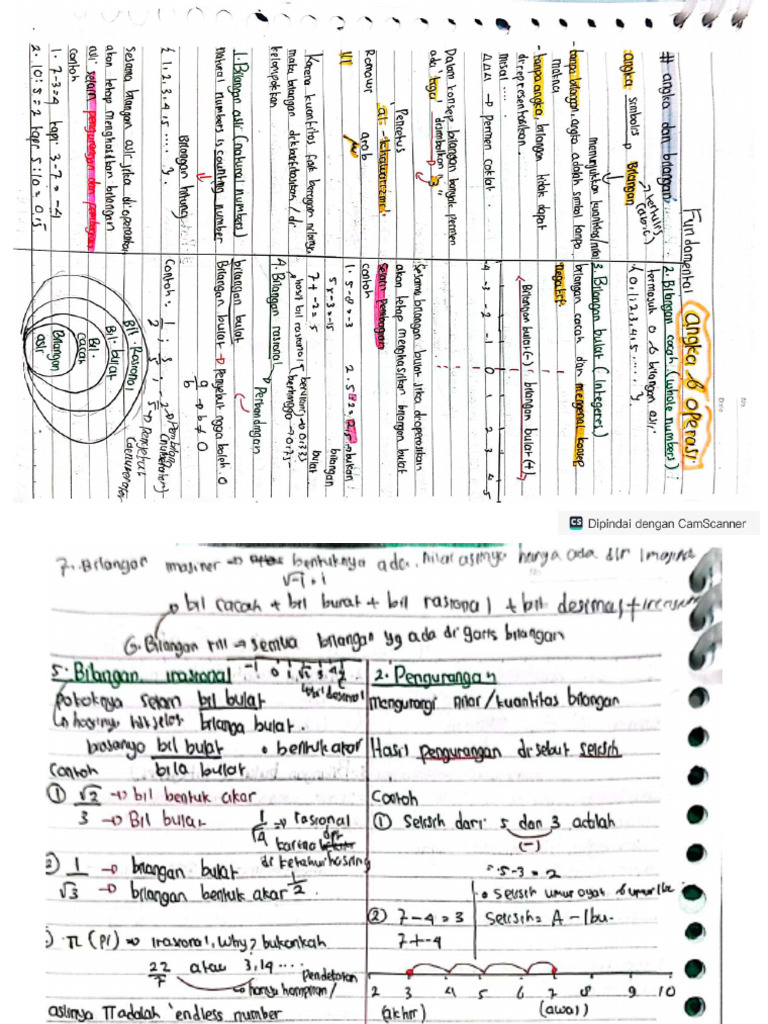 Fundamental angka & operasi
# angka dan bilangan
angka simbolis → Bilangan
menunjukkan kuantitas/nilai
- tanpa bilangan, angka adalah simbol tanpa
makna
- tanpa angka, bilangan tidak dapat
direpresentasikan.
misal ....
→ permen coklat.
Dalam konsep bilangan banyak permen
ada "tiga" disimbolkan "3"
Penemus
al-khawarezmi
Romawi arab
VII
Karena kuantitas fak beragam nilainya
maka bilangan dikarakteristikan / di
kelompokkan
1. Bilangan asli (natural numbers)
natural numbers is counting number
Bilangan hitung
{ 1, 2, 3, 4, 5 .... }
Sesama bilangan asli jika di operasikan
akan tetap menghasilkan bilangan
asli selain pengurangan dan pembagian
contoh
1. 7-3=4 tapi 3-7=-4
2. 10:5=2 tapi 5:10=0,5
2. Bilangan cacah (whole numbers)
termasuk 0 & bilangan asli
{ 0, 1, 2, 3, 4, 5 ...... }
3. Bilangan bulat (integeres)
bilangan cacah dan mengenal konsep
negatif
Bilangan bulat (-) bilangan bulat (+)
-4 -3 -2 -1 0 1 2 3 4 5
Sesama bilangan bulat jika dioperasikan
akan tetap menghasilkan bilangan bulat
selain pembagian
contoh
1. 5-8=-3 2. 5:2=2,5 → bukan
5x-3=-15 bilangan
7+-2=5 bulat
4. Bilangan rasional → Perbandingan
bilangan bulat
Bilangan bulat → penyebut ngga boleh 0
a/b → b ≠ 0
Contoh: 1/2, 3/5
Bil. Rasional
Bil. bulat
Bil. cacah
Bilangan asli
CS Dipindai dengan CamScanner
7. Bilangan imajiner → bentuknya ada, nilai aslinya hanya ada di imajinasi
√-1 = i
bil cacah + bil bulat + bil rasional + bil desimal + irrasional
6. Bilangan riil → semua bilangan yg ada di garis bilangan
5. Bilangan irasional
pokoknya selain bil bulat
bil bulat
bilangan bulat.
biasanya bil bulat • bentuk akar
bila bulat
Contoh
① √2 → bil bentuk akar
3 → Bil bulat
1/√4 → rasional
karena dpt
di ketahui hasilnya
1/2
2) 1 → bilangan bulat
√3 → bilangan bentuk akar
) π (pi) → irasional, Why? bukankah
22/7 atau 3,14 ....
pendekatan
hanya hampiran /
aslinya π adalah 'endless number
2. Pengurangan
mengurangi nilai / kuantitas bilangan
Hasil pengurangan di sebut selisih
Contoh
① Selisih dari 5 dan 3 adalah
(-)
= 5-3 = 2
• selisih umur ayah & umur ibu
Selisih = A - Ibu.
② 7-4=3
7+-4
2 3 4 5 6 7 8 9 10
(akhir) (awal)